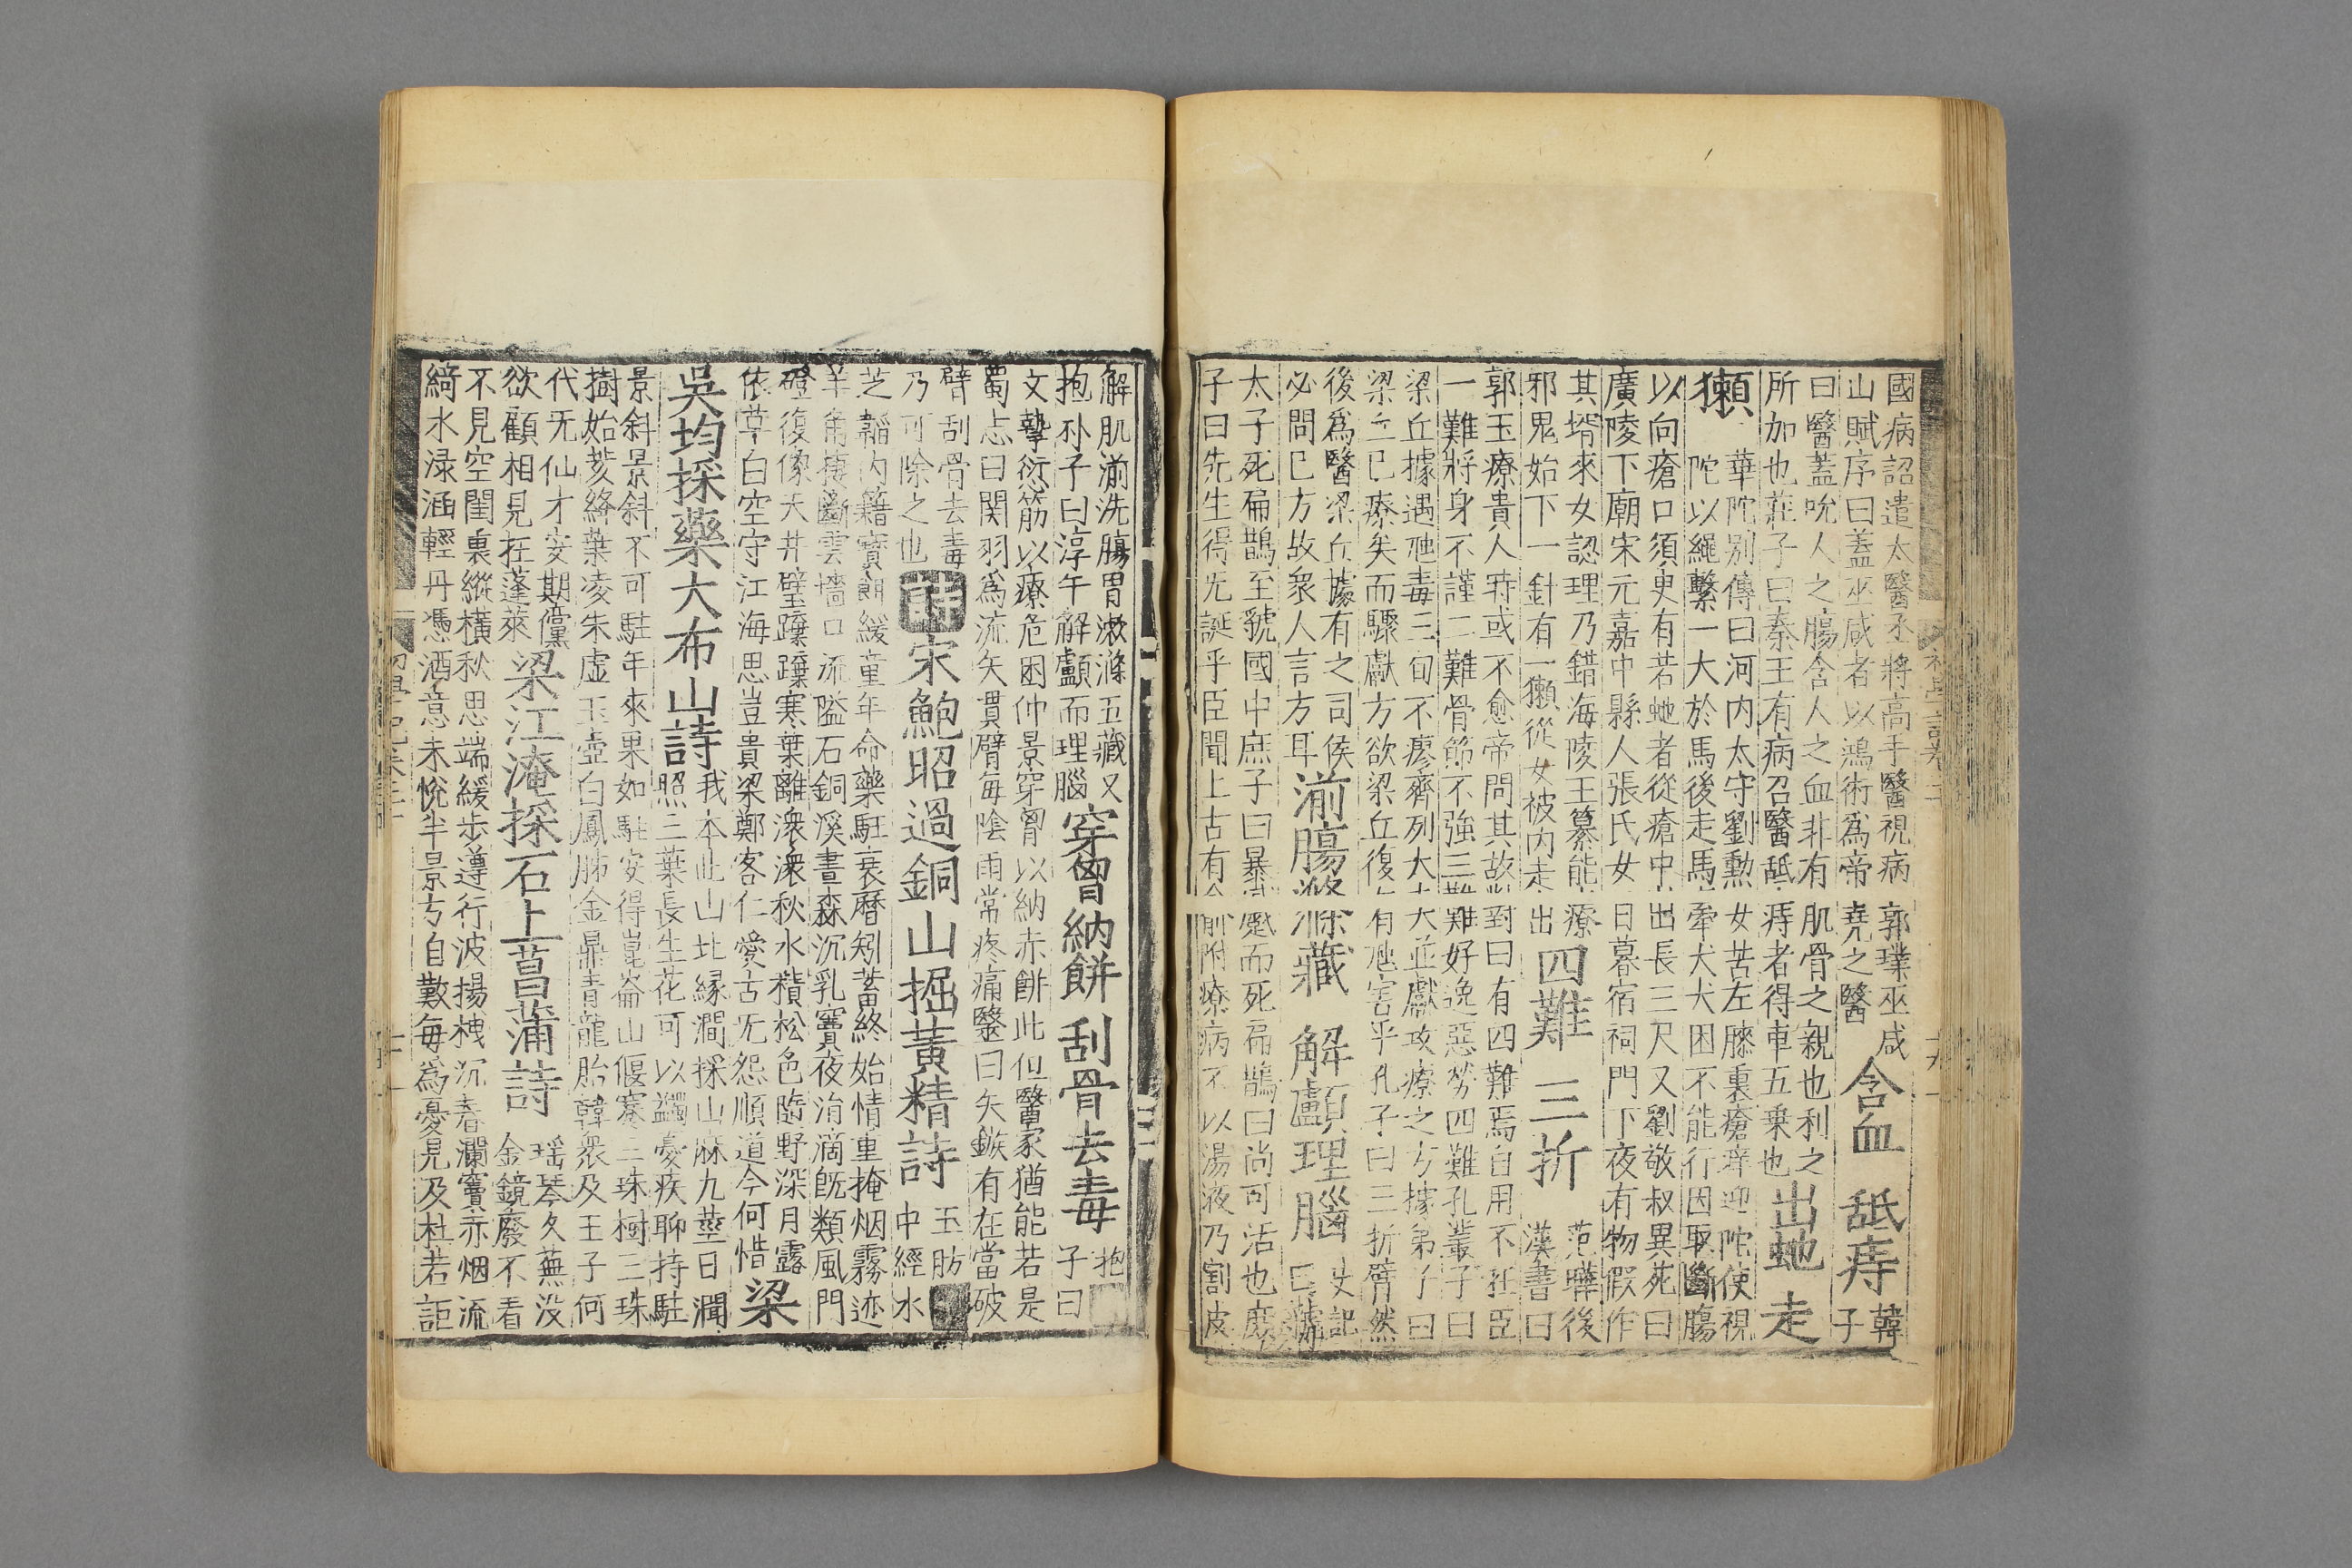 國病詔遣太醫丞將高手醫視病郭璞巫咸
山賦序曰蓋巫咸者以鴻術爲帝堯之醫
含血 舐痔
韓
子
曰醫蓋吮人之膓含人之血非有肌骨之親也利之
所加也莊子曰秦王有病召醫舐痔者得車五乗也
出虵 走
獺
華陀别傳曰河内太守劉勲女苦左膝裏瘡痒迎陀使視
陀以繩繫一犬於馬後走馬牽犬犬困不能行因取斷膓
以向瘡口須臾有若虵者從瘡中出長三尺又劉敬叔異苑曰
廣陵下廟宋元嘉中縣人張氏女日暮宿祠門下夜有物假作
其壻來女認理乃錯海陵王纂能療
邪鬼始下一針有一獺從女被内走出
四難 三折
范曄後
漢書曰
郭玉療貴人時或不愈帝問其故對曰有四難焉自用不任臣
一難將身不謹二難骨節不強三難好逸惡勞四難孔叢子曰
梁丘據遇虺毒三旬不瘳齊列大夫並獻攻療之方據弟子曰
梁丘已療矣而驟獻方欲梁丘復有虺害乎孔子曰三折臂然
後爲醫梁丘據有之司侯
必問已方故衆人言方耳
湔膓滌藏 解顱理腦
史記
曰虢
太子死扁鵲至虢國中庶子曰暴蹷而死扁鵲曰尚可活也庶
子曰先生得无誕乎臣聞上古有俞附療病不以湯液乃割皮
解肌湔洗膓胃漱滌五藏又
抱朴子曰淳于解顱而理腦
穿胷納餅 刮骨去毒
抱
子曰
文摯愆筋以療危困仲景穿胷以納赤餅此但醫家猶能若是
蜀志曰関羽爲流矢貫臂每陰雨常疼痛醫曰矢鏃有在當破
臂刮骨去毒
乃可除之也
詩
宋鮑昭過銅山掘黄精詩
玉肪
中經水
芝韜内籍寳朗緩童年命藥駐衰曆矧蓄終始情重掩烟霧迹
羊角棲斷雲㯭口流隘石銅溪晝森沉乳竇夜涓滴旣類風門
磴復像天井璧蹀蹀寒葉離滾滾秋水積松色隨野深月露
依草白空守江海思豈貴梁鄭客仁愛古无怨順道今何惜
梁
吳均採藥大布山詩
我本此山北縁澗採山麻九莖日潤
照三葉長生花可以蠲憂疾聊持駐
景斜景斜不可駐年來果如駐安得崑崙山偃蹇三珠樹三珠
樹始荄絳葉凌朱虚玉壺白鳳肺金鼎青龍胎韓衆及王子何
代无仙才安期儻
欲顧相見在蓬萊
梁江淹採石上菖蒲詩
瑶琴久蕪没
金鏡廢不看
不見空閨裏縱橫秋思端緩歩遵行波揚栧沉春瀾竇赤烟流
綺水渌涵輕丹憑酒意未恱半景方自歎每爲憂見及杜若詎